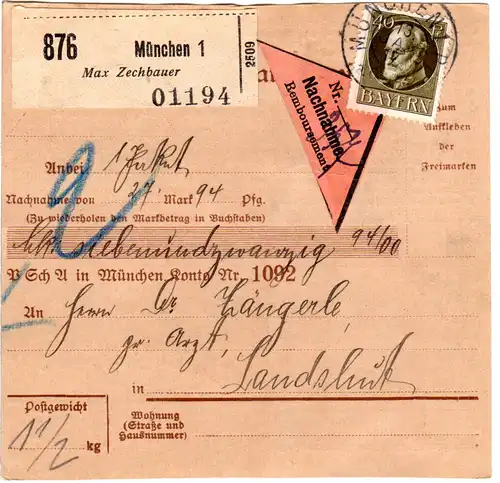 876 München 1
Max Zechbauer
01194
2509
Nr.
Nachnahme
Remboursement
MÜNCHEN
40
BAYERN
zum
Aufkleben
der
Freimarken
Anbei 1 Paket
Nachnahme von 27 Mark 94 Pfg.
(Zu wiederholen den Markbetrag in Buchstaben)
Mk. siebenundzwanzig 94/00
P Sch A in München Konto Nr. 1092
An Herrn Dr. Zängerle,
pr. Arzt,
in Landshut
Postgewicht
1 1/2 kg
Wohnung
(Straße und
Hausnummer)